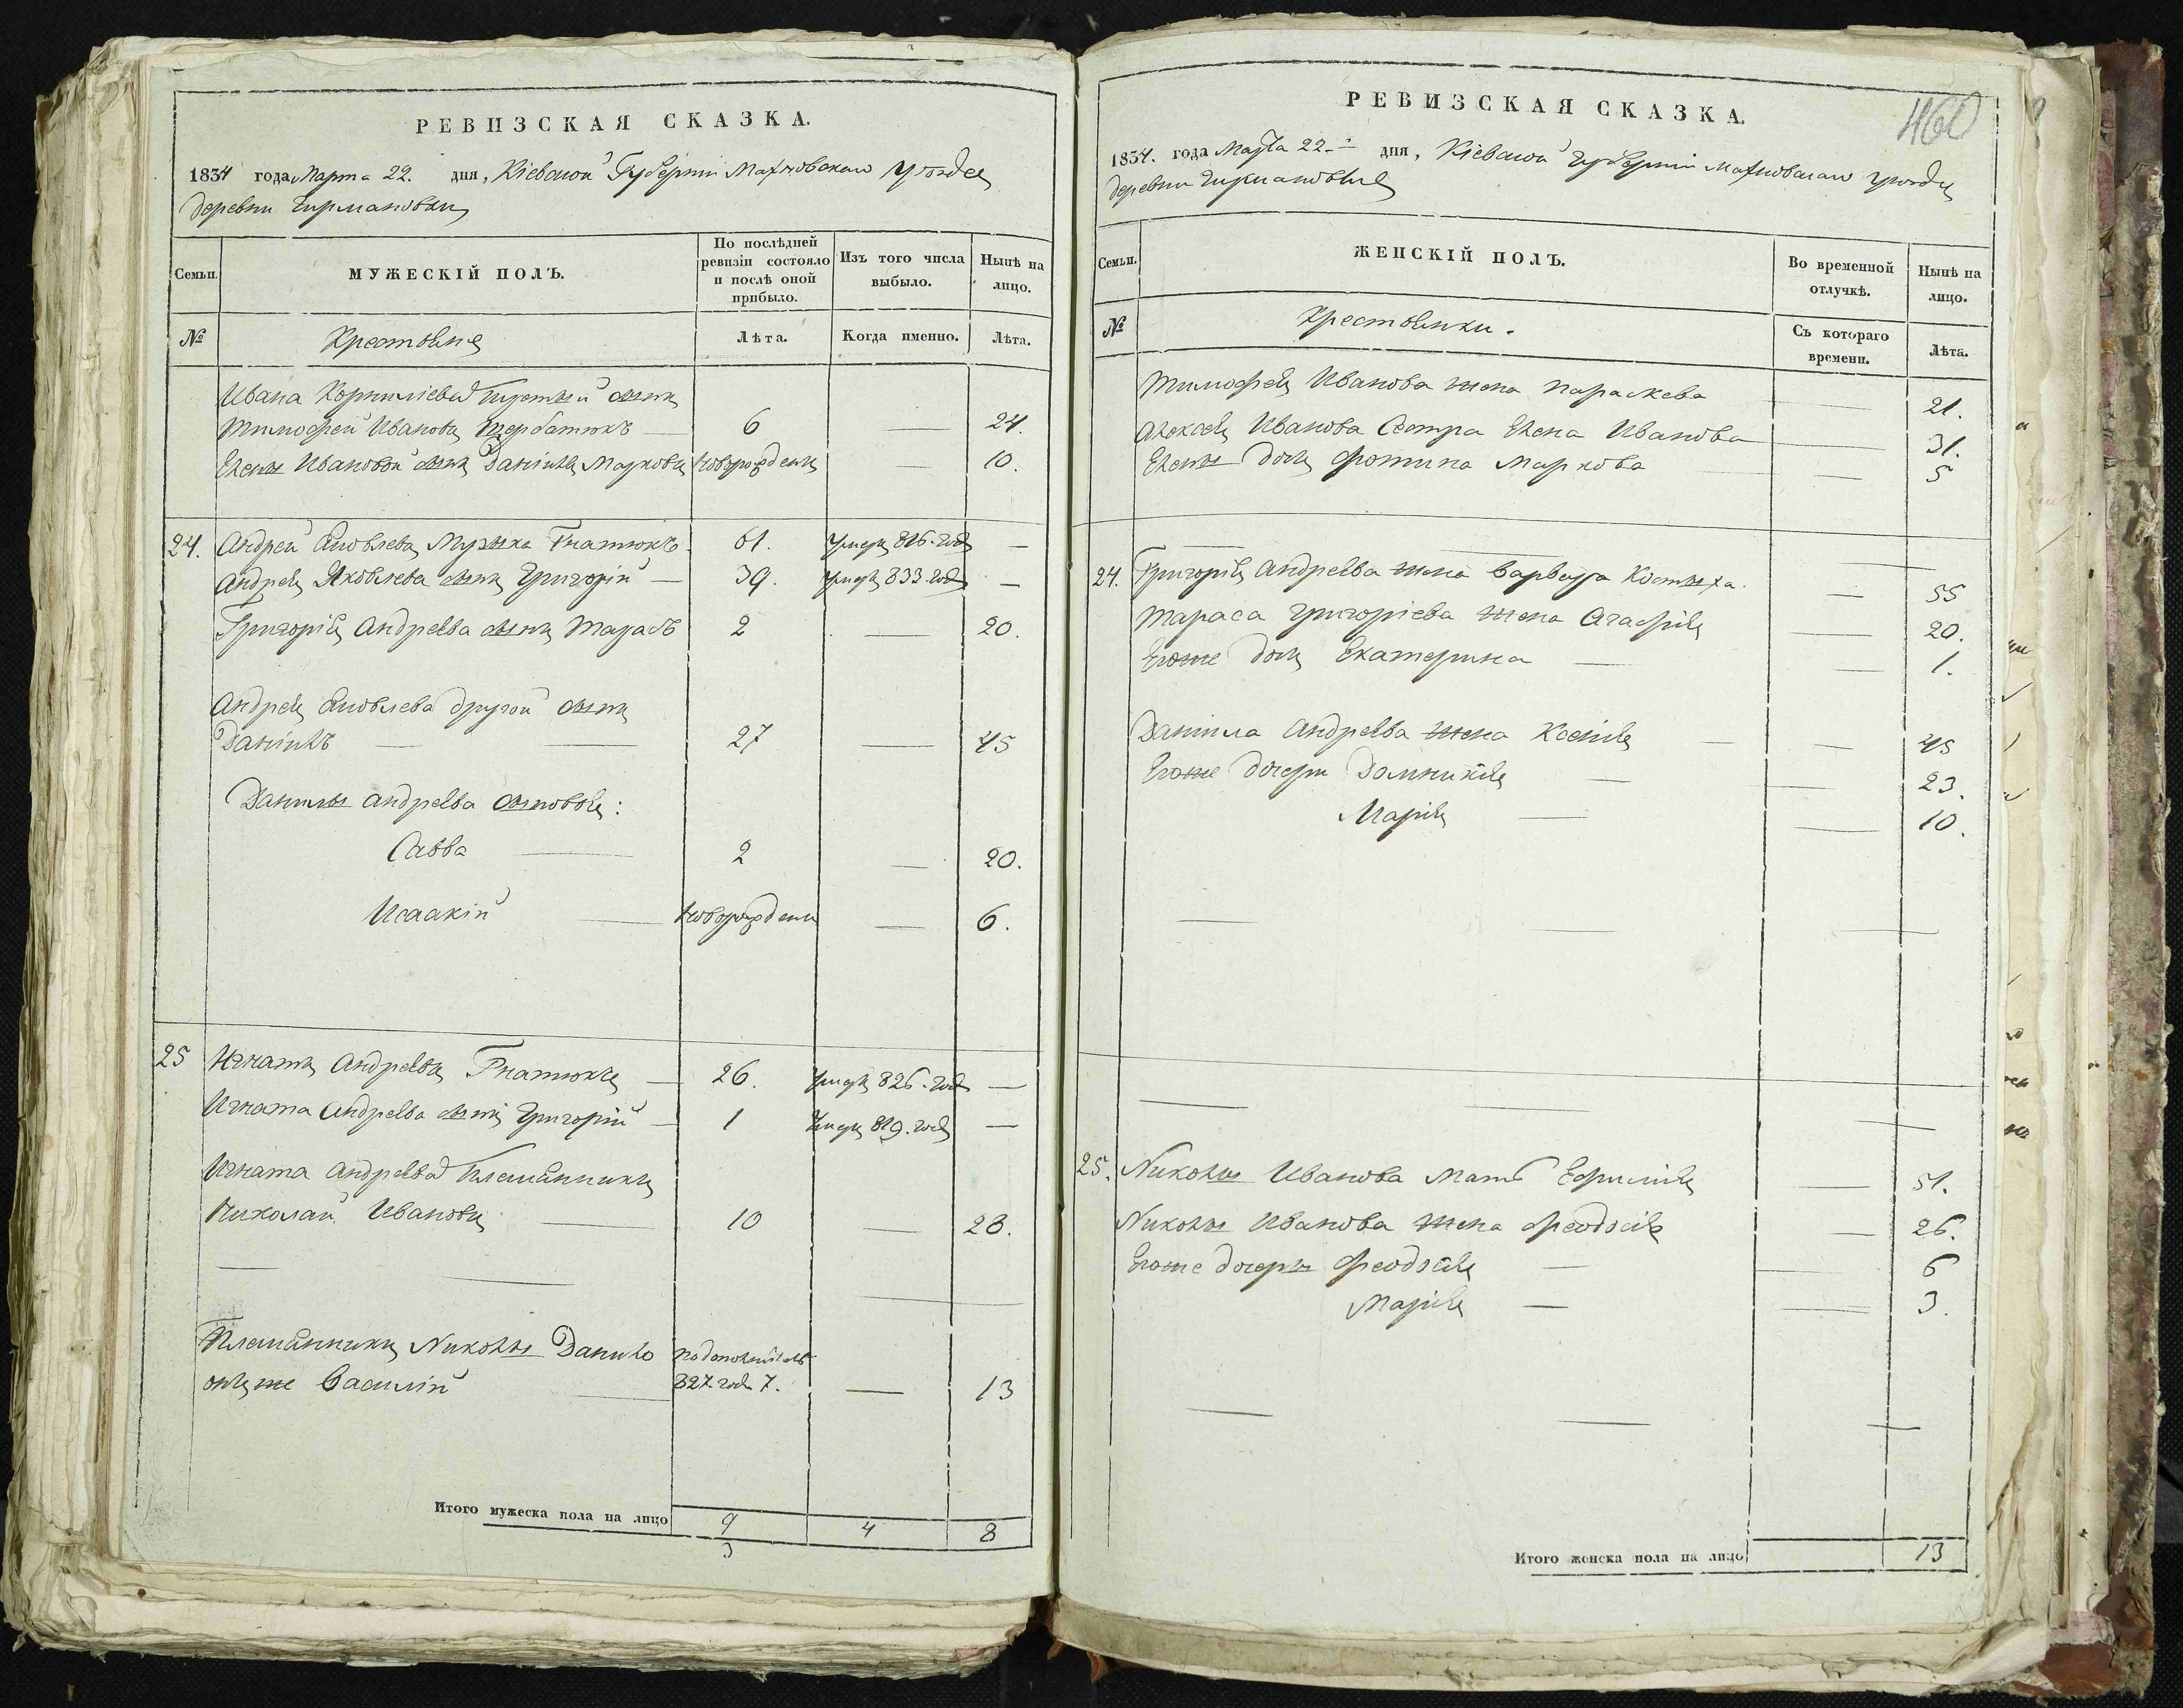 РЕВИЗСКАЯ СКАЗКА.
1834 года Марта 22. дня, Кіевской Губерніи Махновскаго уѣзда
деревни Чирмановки
Семьи. МУЖЕСКІЙ ПОЛЪ. По послѣдней ревизіи состояло и послѣ оной прибыло. Изъ того числа выбыло. Нынѣ на лицо.
№ Крестьяне Лѣта. Когда именно. Лѣта.
Ивана Корниліева сынъ
Тимофей Ивановъ Щербатюкъ — 6 — 24.
Елены Ивановой сынъ Даніилъ Марковъ новорожденъ — 10.
24. Андрей Яковлевъ Музыка Гнатюкъ 61. умеръ 816. года —
Андрея Яковлева сынъ Григорій — 39. умеръ 833. года —
Григорія Андреева сынъ Тарасъ 2 — 20.
Андрея Яковлева другой сынъ
Даніилъ — — 27 — 45
Данилы Андреева сыновья:
Савва — 2 — 20.
Исаакій — новорожденъ — 6.
25 Игнатъ Андреевъ Гнатюкъ — 26. умеръ 826. года —
Игната Андреева сынъ Григорій — 1 умеръ 819. года —
Игната Андреева Племянникъ
Николай Ивановъ — 10 — 28.
Племянникъ Николы Данило
онъ же Василій — по дополнительной 827. года 7. — 13
Итого мужеска пола на лицо 9 4 8
3
460
РЕВИЗСКАЯ СКАЗКА.
1834. года Марта 22. дня, Кіевской Губерніи Махновскаго уѣзда
деревни Чирмановки
Семьи. ЖЕНСКІЙ ПОЛЪ. Во временной отлучкѣ. Нынѣ на лицо.
№ Крестьянки. Съ котораго времени. Лѣта.
Тимофея Иванова жена Параскева — 21.
Алексея Иванова Сестра Елена Иванова — 31.
Елены дочь Фотина Маркова — 5
24. Григорія Андреева жена Варвара Костыха. — 55
Тараса Григоріева жена Агафія — 20.
Его же дочь Екатерина — — 1.
Данила Андреева жена Ксенія — — 45
Его же дочери Домникія — — 23.
Марія — — 10.
25. Николы Иванова мать Ефимія — 51.
Николы Иванова жена Феодосія — 26.
Его же дочери Феодосія — — 6
Марія — — 3.
Итого женска пола на лицо 13